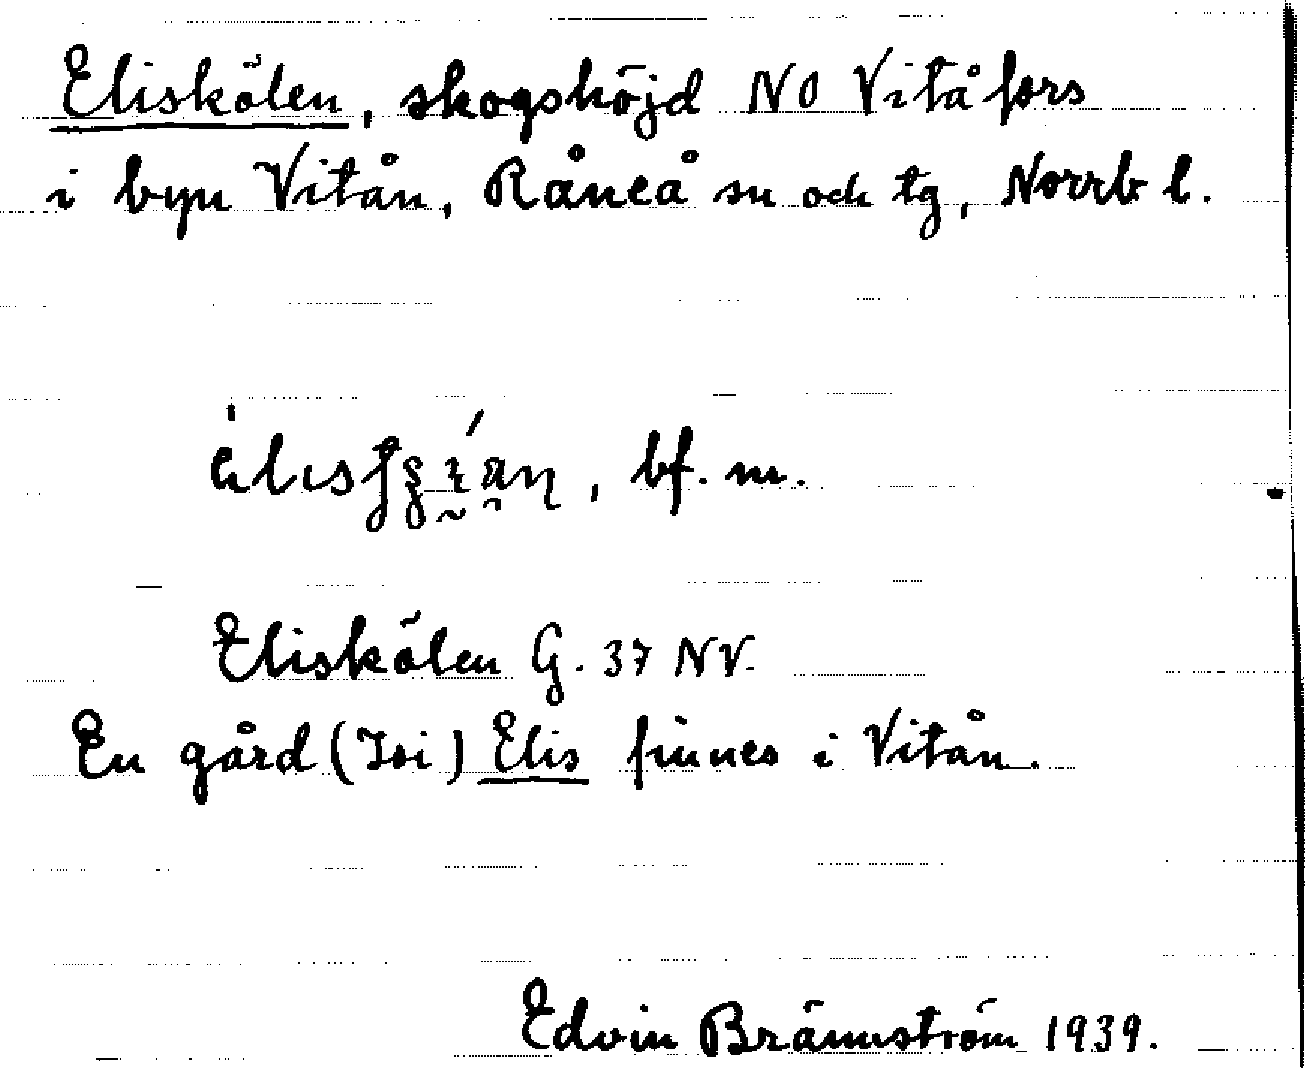 Eliskölen, skogshöjd NO Vitåfors
i byn Vitån, Råneå sn och tg, Norrb l.
bf. m.
Eliskölen G. 37 NV.
En gård (Isi) Elis finnes i Vitån.
Edvin Brännström 1939.